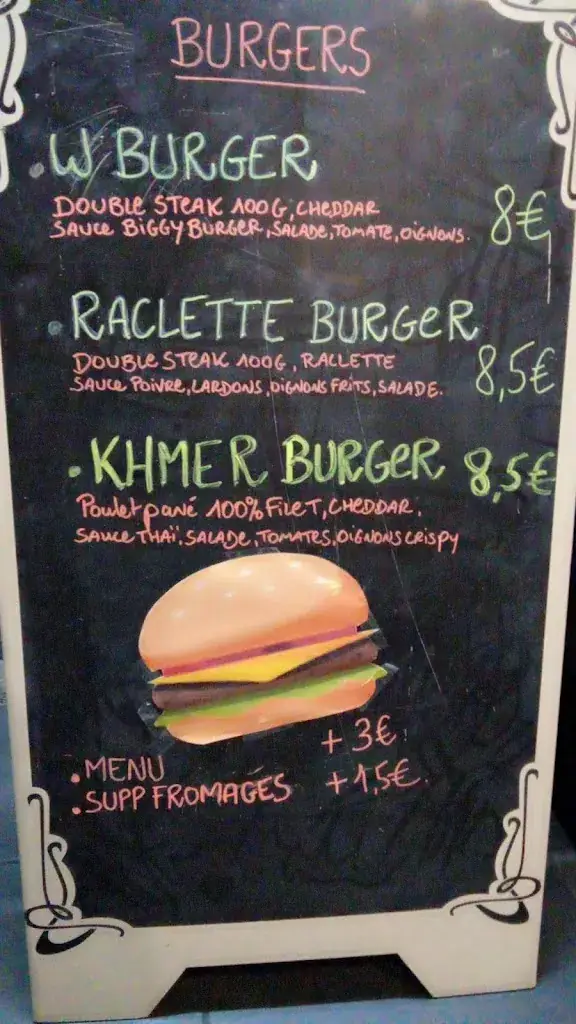 BURGERS
• W BURGER
DOUBLE STEAK 100G, CHEDDAR
SAUCE BIGGY BURGER, SALADE, TOMATE, OIGNONS. 8€
• RACLETTE BURGER
DOUBLE STEAK 100G, RACLETTE
SAUCE POIVRE, LARDONS, OIGNONS FRITS, SALADE. 8,5€
• KHMER BURGER 8,5€
Poulet pané 100% FILET, CHEDDAR,
SAUCE THAÏ, SALADE, TOMATES, OIGNONS CRISPY
• MENU +3€
• SUPP FROMAGES +1,5€.